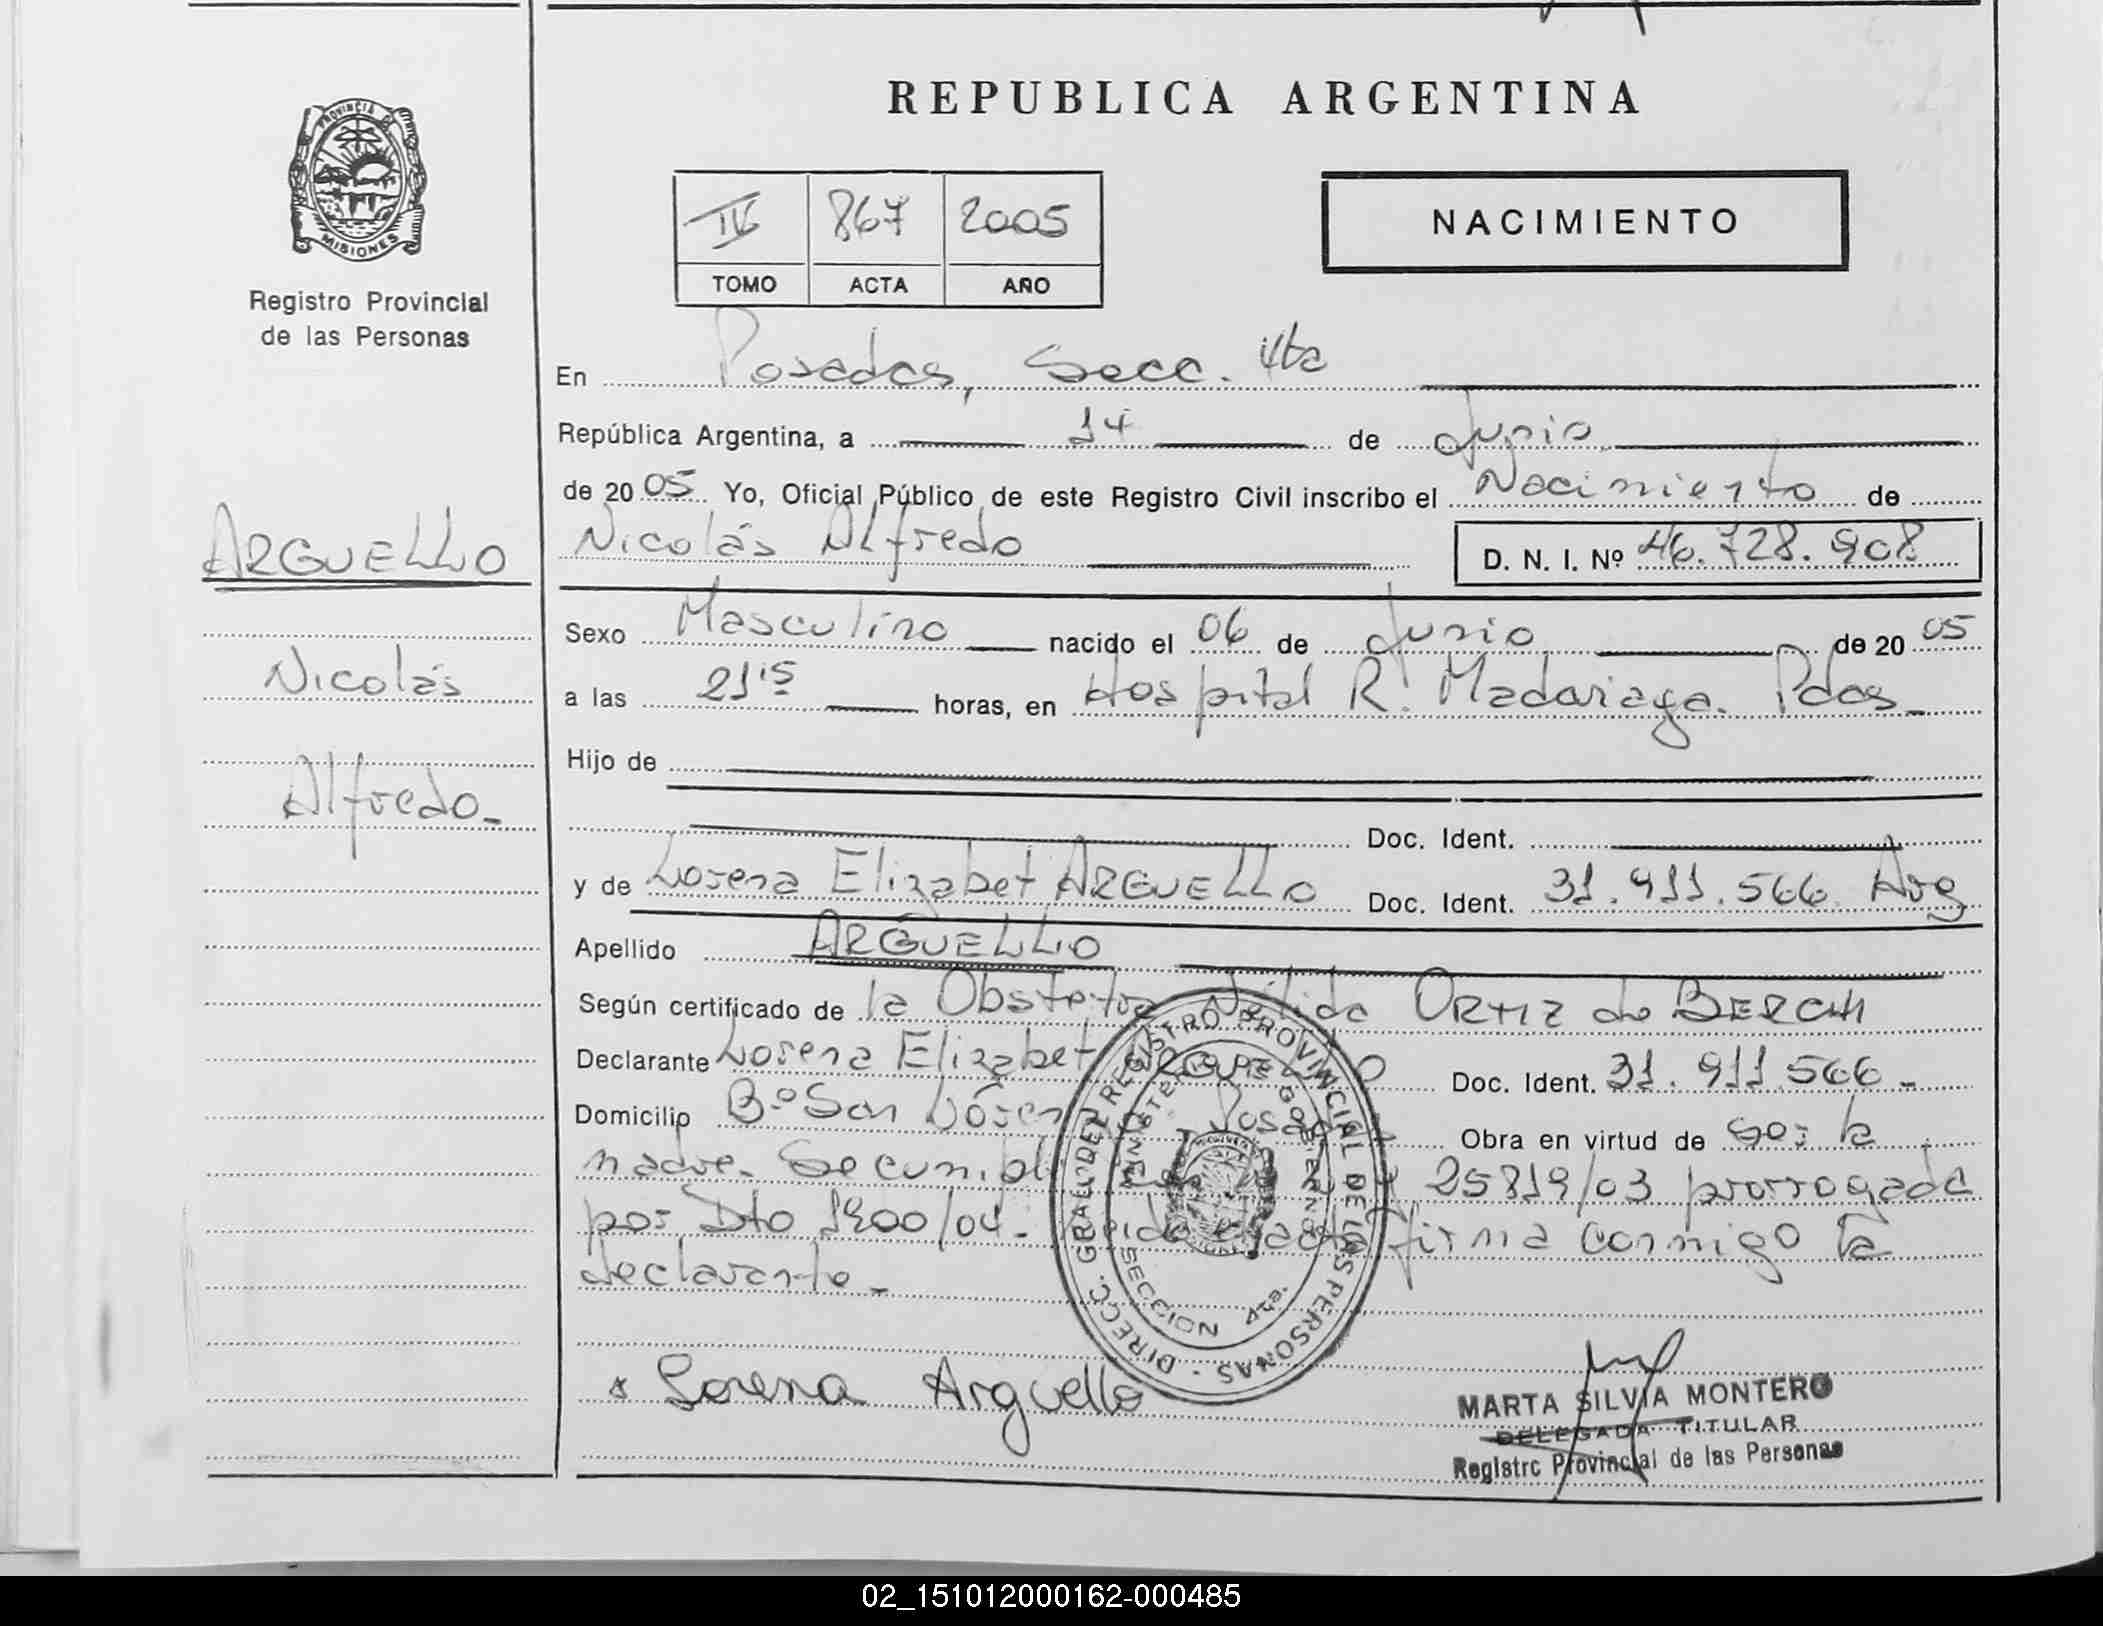 REPUBLICA ARGENTINA
PROVINCIA DE
MISIONES
Registro Provincial
de las Personas
IV 867 2005
TOMO ACTA AÑO
NACIMIENTO
En Posadas, Secc. 4ta
República Argentina, a 14 de Junio
de 2005 Yo, Oficial Público de este Registro Civil inscribo el Nacimiento de
Nicolás Alfredo D. N. I. Nº 46.728.908
ARGUELLO
Nicolás
Alfredo
Sexo Masculino nacido el 06 de Junio de 2005
a las 21 15 horas, en Hospital R. Madariaga. Pdas
Hijo de
Doc. Ident.
y de Lorena Elizabet ARGUELLO Doc. Ident. 31.911.566 Arg
Apellido ARGUELLO
Según certificado de la Obstetra Nélida ORTIZ de BERCHI
Declarante Lorena Elizabet ARGUELLO Doc. Ident. 31.911.566
Domicilio Bº San Posadas Obra en virtud de ser la
madre. Se cumpl 25819/03 prorrogada
por Dto 1900/04. Leída el acta firma conmigo la
declarante
DIRECC. GRAL. DEL REGISTRO PROVINCIAL DE LAS PERSONAS
MINISTERIO DE GOBIERNO
SECCION 4ta.
x Lorena Arguello
MARTA SILVIA MONTERO
DELEGADA TITULAR
Registro Provincial de las Personas
02_151012000162-000485